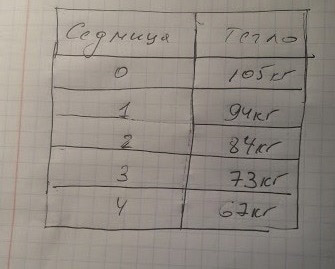 Седмица Тегло
0 105кг
1 94кг
2 84кг
3 73кг
4 67кг